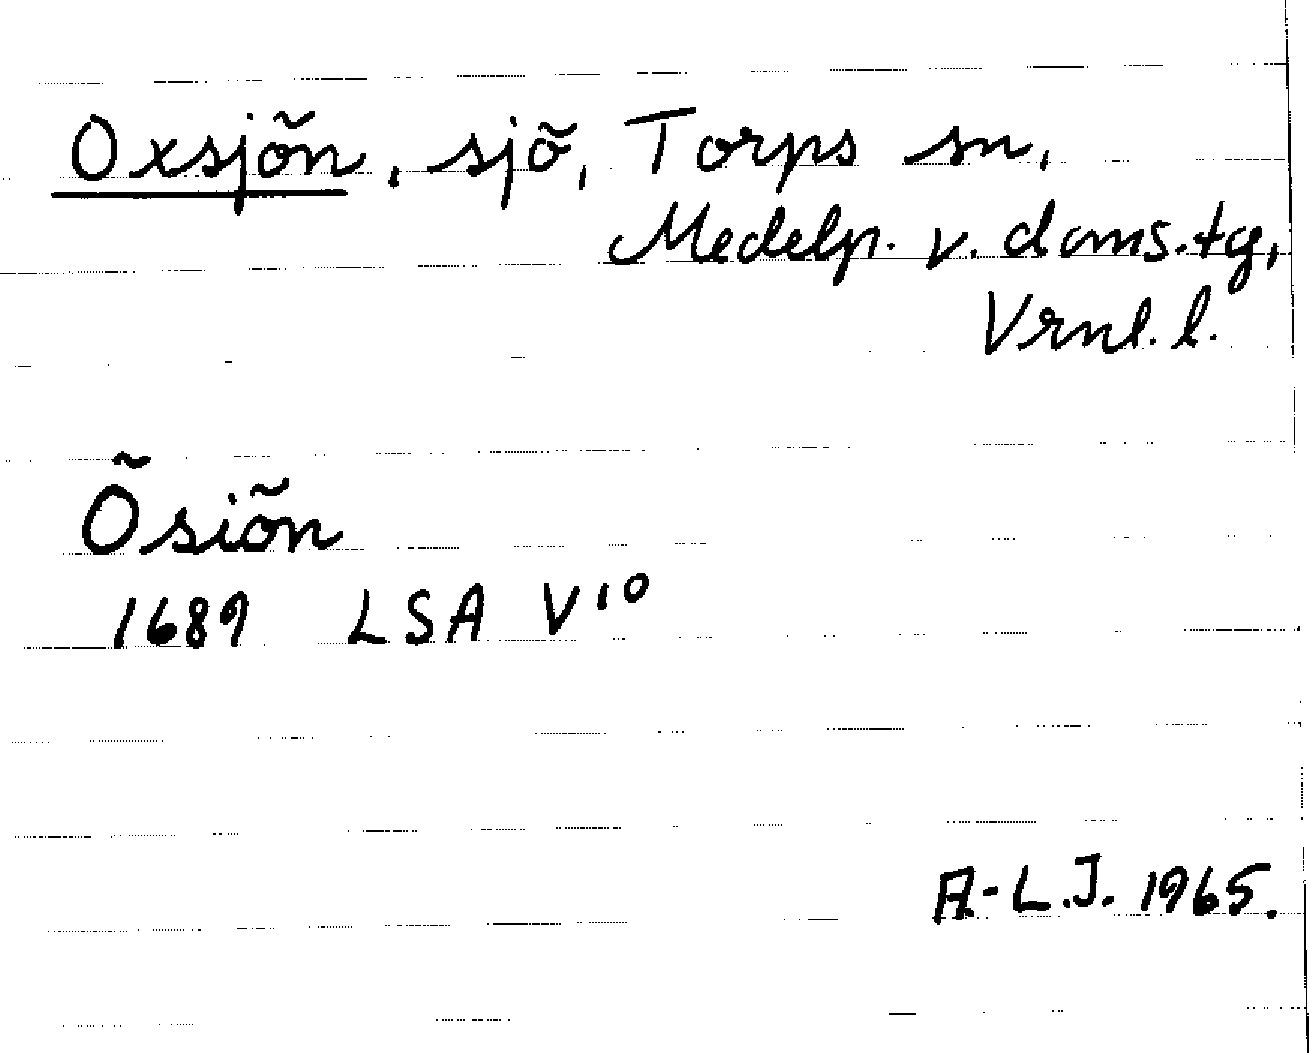 Oxsjön, sjö, Torps sn,
Medelp. v. doms.tg,
Vrnl. l.
Ösiön
1689 LSA V10
A-L.J. 1965.